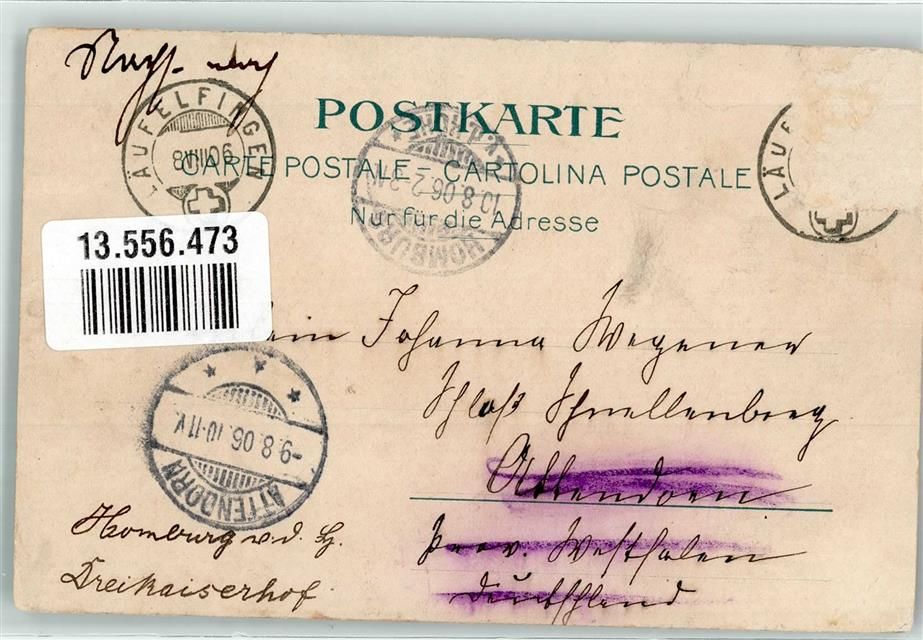 LÄUFELFINGEN
8.VIII.06
POSTKARTE
CARTE POSTALE – CARTOLINA POSTALE
Nur für die Adresse
LÄUF
HOMBURG
10.8.06.2-3N
13.556.473
Johanna Wegener
Schloß Schnellenberg
Attendorn
Prov. Westfalen
Deutschland
ATTENDORN
-9.8.06.10-11V
Homburg v. d. H.
Dreikaiserhof